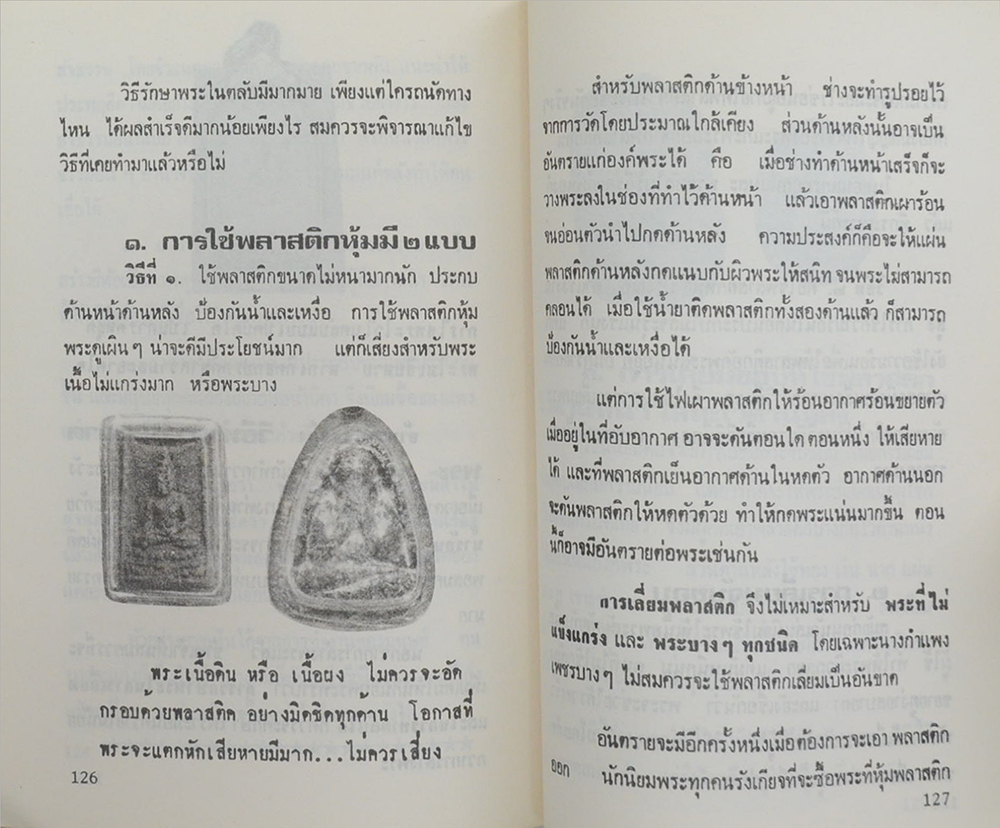 วิธีรักษาพระในตลับมีมากมาย เพียงแต่ใครถนัดทาง
ไหน ได้ผลสำเร็จดีมากน้อยเพียงไร สมควรจะพิจารณาแก้ไข
วิธีที่เคยทำมาแล้วหรือไม่
๑. การใช้พลาสติกหุ้มมี ๒ แบบ
วิธีที่ ๑. ใช้พลาสติกขนาดไม่หนามากนัก ประกบ
ด้านหน้าด้านหลัง ป้องกันน้ำและเหงื่อ การใช้พลาสติกหุ้ม
พระดูเผิน ๆ น่าจะดีมีประโยชน์มาก แต่ก็เสี่ยงสำหรับพระ
เนื้อไม่แกร่งมาก หรือพระบาง
พระเนื้อดิน หรือ เนื้อผง ไม่ควรจะอัด
กรอบด้วยพลาสติค อย่างมิดชิดทุกด้าน โอกาสที่
พระจะแตกหักเสียหายมีมาก...ไม่ควรเสี่ยง
126
สำหรับพลาสติกด้านข้างหน้า ช่างจะทำรูปรอยไว้
จากการวัดโดยประมาณใกล้เคียง ส่วนด้านหลังนั้นอาจเป็น
อันตรายแก่องค์พระได้ คือ เมื่อช่างทำด้านหน้าเสร็จก็จะ
วางพระลงในช่องที่ทำไว้ด้านหน้า แล้วเอาพลาสติกเผาร้อน
จนอ่อนตัวนำไปกดด้านหลัง ความประสงค์ก็คือจะให้แผ่น
พลาสติกด้านหลังกดแนบกับผิวพระให้สนิท จนพระไม่สามารถ
คลอนได้ เมื่อใช้น้ำยาติดพลาสติกทั้งสองด้านแล้ว ก็สามารถ
ป้องกันน้ำและเหงื่อได้
แต่การใช้ไฟเผาพลาสติกให้ร้อนอากาศร้อนขยายตัว
เมื่ออยู่ในที่อับอากาศ อาจจะดันตอนใด ตอนหนึ่ง ให้เสียหาย
ได้ และที่พลาสติกเย็นอากาศด้านในหดตัว อากาศด้านนอก
จะดันพลาสติกให้หดตัวด้วย ทำให้กดพระแน่นมากขึ้น ตอน
นี้ก็อาจมีอันตรายต่อพระเช่นกัน
การเลี่ยมพลาสติก จึงไม่เหมาะสำหรับ พระที่ไม่
แข็งแกร่ง และ พระบาง ๆ ทุกชนิด โดยเฉพาะนางกำแพง
เพชรบาง ๆ ไม่สมควรจะใช้พลาสติกเลี่ยมเป็นอันขาด
อันตรายจะมีอีกครั้งหนึ่งเมื่อต้องการจะเอา พลาสติก
ออก นักนิยมพระทุกคนรังเกียจที่จะซื้อพระที่หุ้มพลาสติก
127